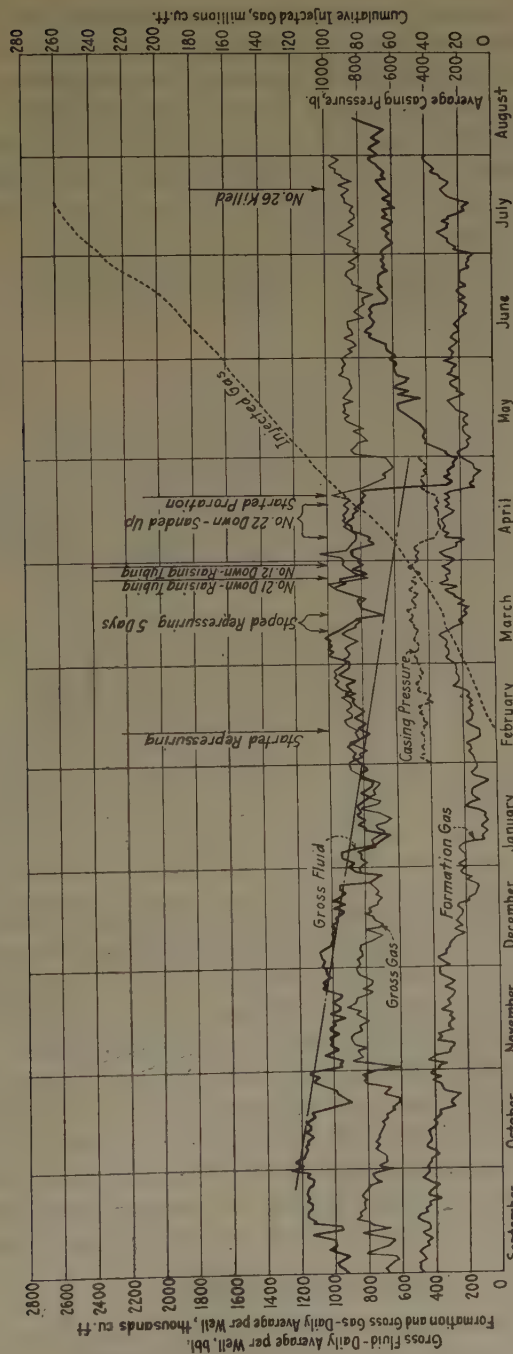 Gross Fluid-Daily Average per Well, bbl.
Formation and Gross Gas-Daily Average per Well, thousands cu.ft
2800
2600
2400
2200
2000
1800
1600
1400
1200
1000
800
600
400
200
0
September
October
November
December
January
February
March
April
May
June
July
August
Gross Fluid
Gross Gas
Formation Gas
Casing Pressure
Started Repressuring
Stoped Repressuring 5 Days
No.21 Down-Raising Tubing
No.12 Down-Raising Tubing
No.22 Down-Sanded Up
Started Proration
Injected Gas
No.26 Killed
Average Casing Pressure, lb.
1000
800
600
400
200
Cumulative Injected Gas, millions cu.ft.
280
260
240
220
200
180
160
140
120
100
80
60
40
20
0